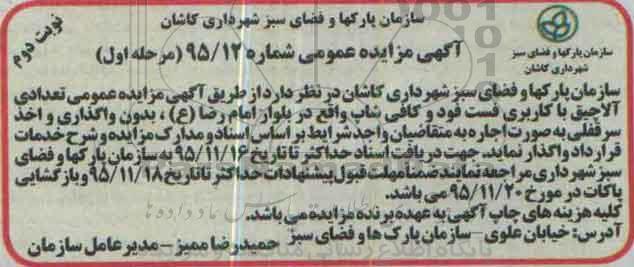 سازمان پارکها و فضای سبز شهرداری کاشان
نوبت دوم
آگهی مزایده عمومی شماره ۹۵/۱۲ (مرحله اول)
سازمان پارکها و فضای سبز
شهرداری کاشان
سازمان پارکها و فضای سبز شهرداری کاشان در نظر دارد از طریق آگهی مزایده عمومی تعدادی
آلاچیق با کاربری فست فود و کافی شاپ واقع در بلوار امام رضا (ع) ، بدون واگذاری و اخذ
سرقفلی به صورت اجاره به متقاضیان واجد شرایط بر اساس اسناد و مدارک مزایده و شرح خدمات
قرارداد واگذار نماید. جهت دریافت اسناد حداکثر تا تاریخ ۹۵/۱۱/۱۶ به سازمان پارکها و فضای
سبز شهرداری مراجعه نمایند ضمناً مهلت قبول پیشنهادات حداکثر تا تاریخ ۹۵/۱۱/۱۸ و بازگشایی
پاکات در مورخ ۹۵/۱۱/۲۰ می باشد.
کلیه هزینه های چاپ آگهی به عهده برنده مزایده می باشد.
آدرس: خیابان علوی – سازمان پارک ها و فضای سبز
حمیدرضا ممیز – مدیر عامل سازمان